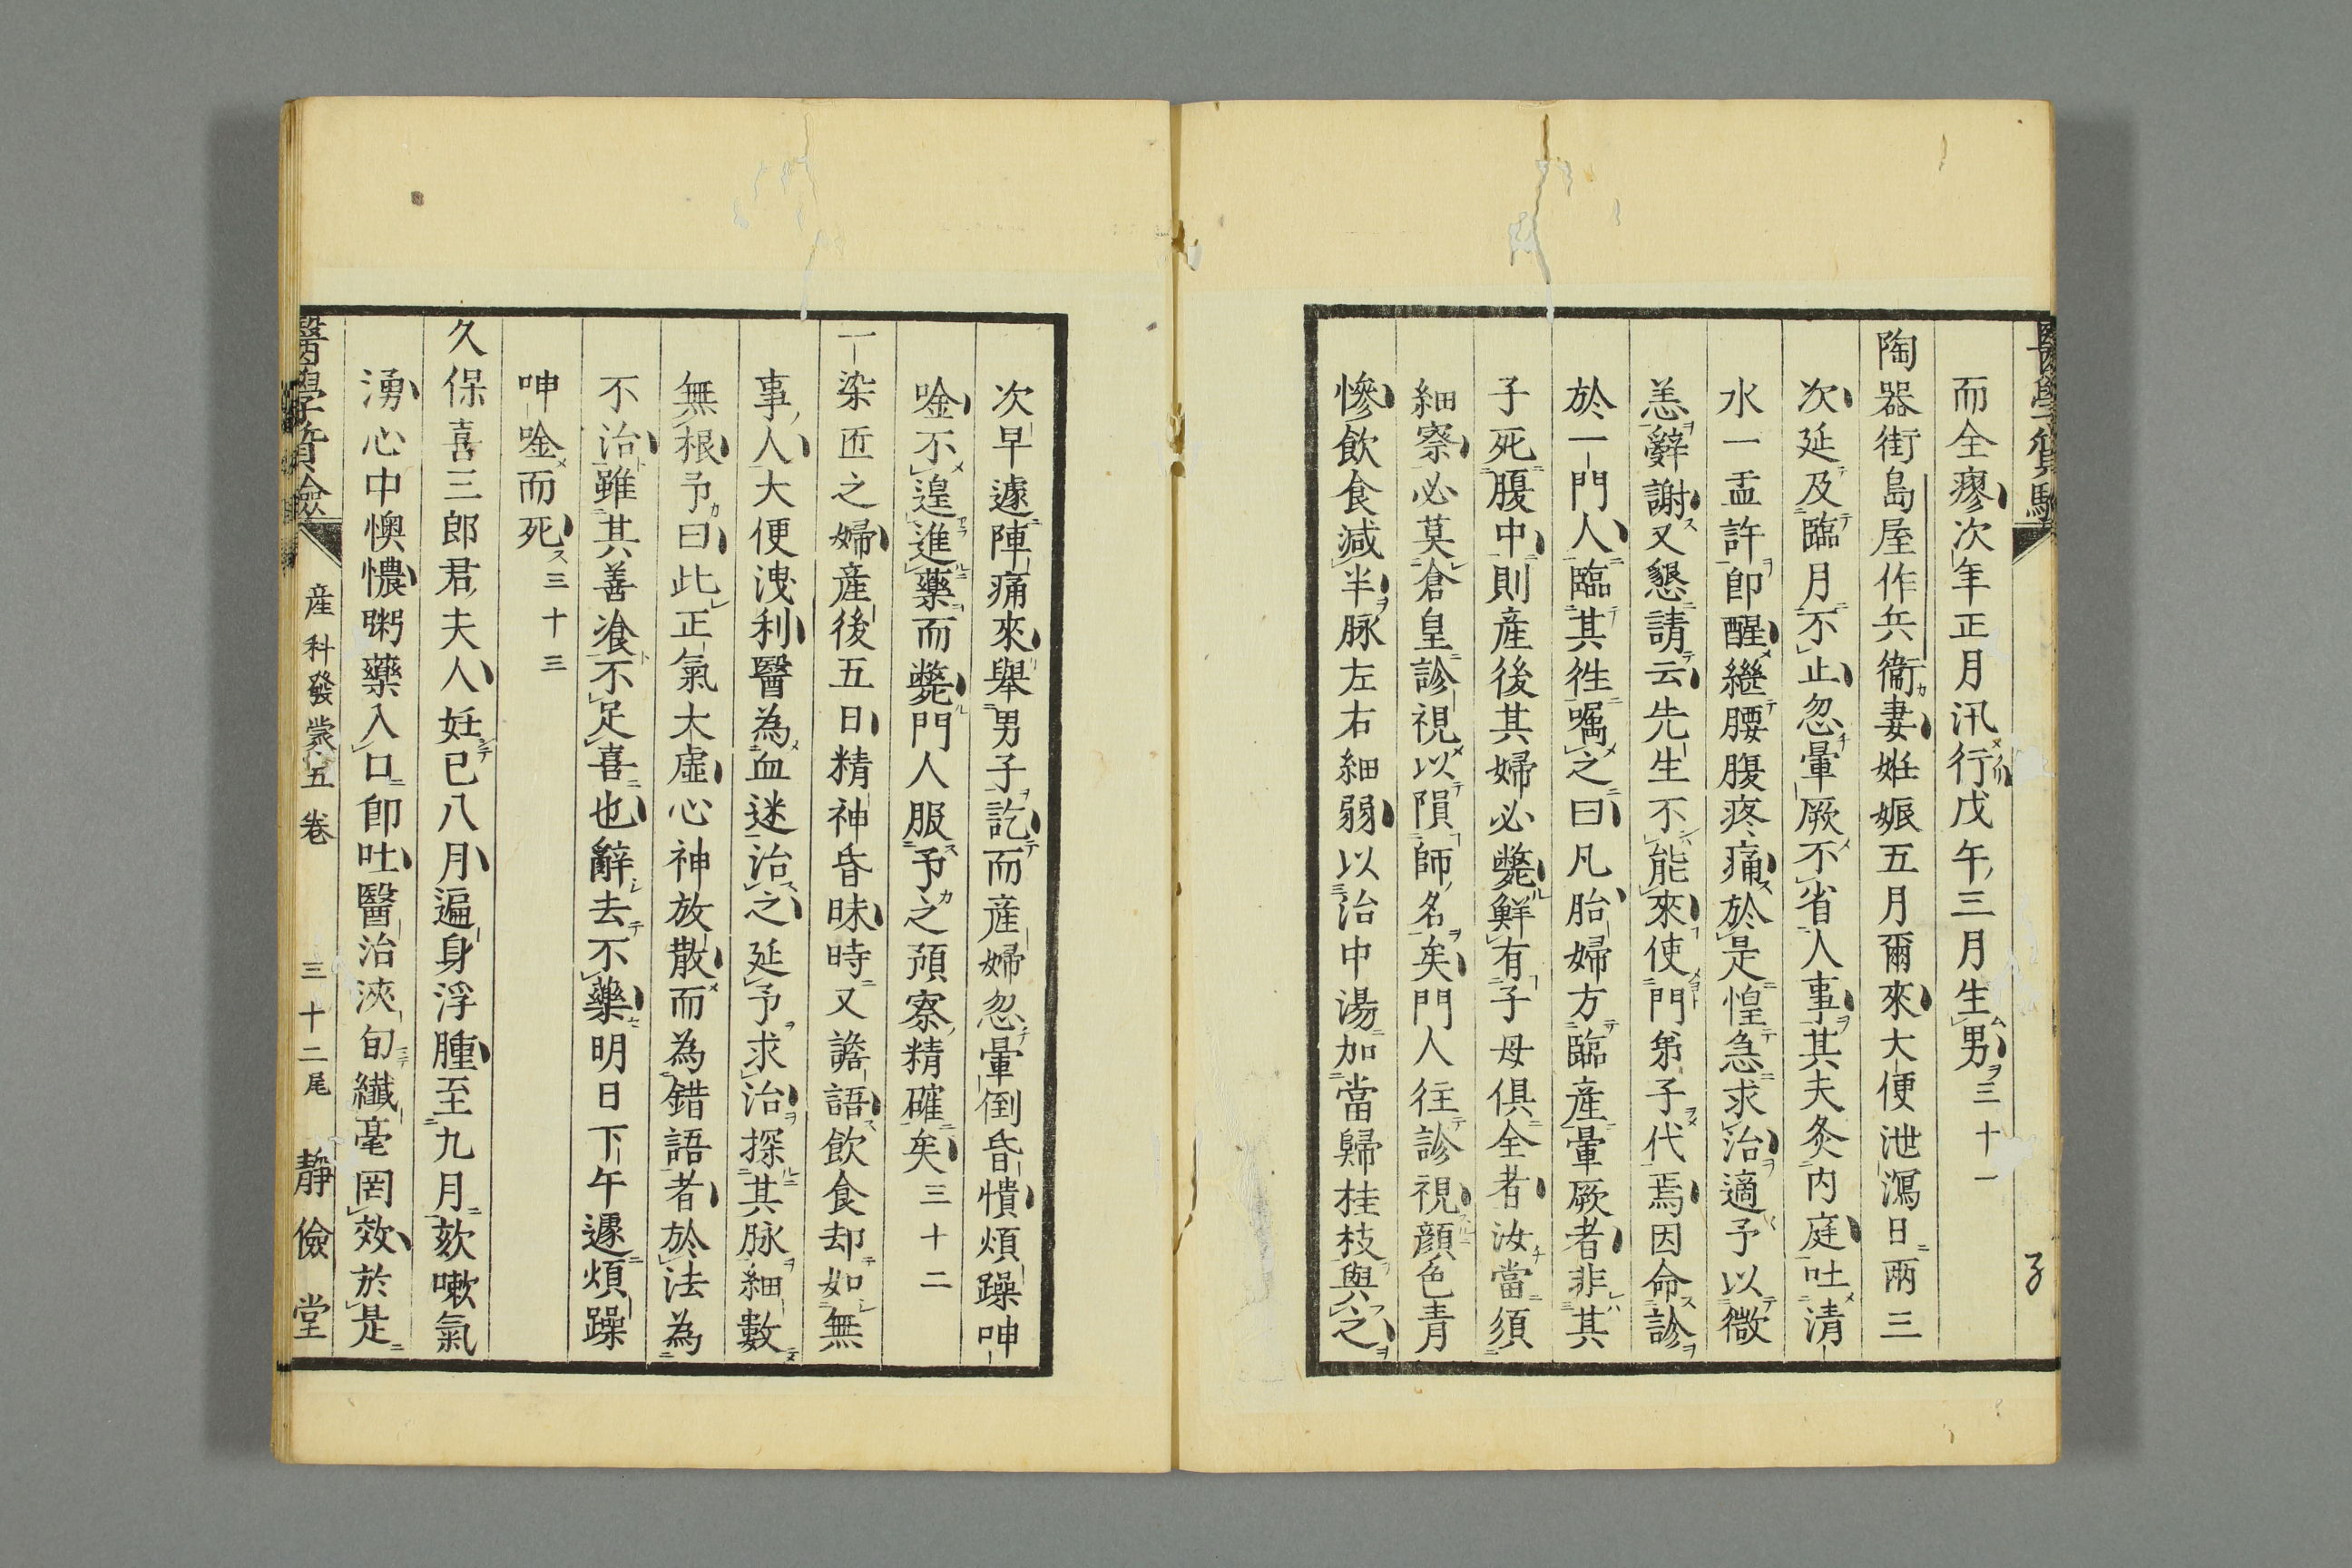 而全瘳次年正月汛行戊午三月生男三十一
陶器街島屋作兵衞妻姙娠五月爾來大便泄瀉日兩三
次延及臨月不止忽暈厥不省人事其夫灸内庭吐清
水一盂許卽醒繼腰腹疼痛於是惶急求治適予以微
恙辭謝又懇請云先生不能來使門弟子代焉因命診
於一門人臨其徃囑之曰凡胎婦方臨産暈厥者非其
子死腹中則産後其婦必斃鮮有子母俱全者汝當須
細察必莫倉皇診視以隕師名矣門人往診視顔色青
慘飲食減半脉左右細弱以治中湯加當歸桂枝與之
次早遽陣痛來舉男子訖而産婦忽暈倒昏憒煩躁呻
唫不遑進藥而斃門人服予之預察精確矣三十二
一染匠之婦産後五日精神昏昧時又譫語飲食却如無
事人大便洩利醫為血迷治之延予求治探其脉細數
無根予曰此正氣大虛心神放散而為錯語者於法為
不治雖其善飡不足喜也辭去不藥明日下午遽煩躁
呻唫而死三十三
久保喜三郎君夫人妊已八月遍身浮腫至九月欬嗽氣
湧心中懊憹粥藥入口卽吐醫治浹旬纖毫罔效於是
産科發蒙 五卷 三十二尾 靜儉堂